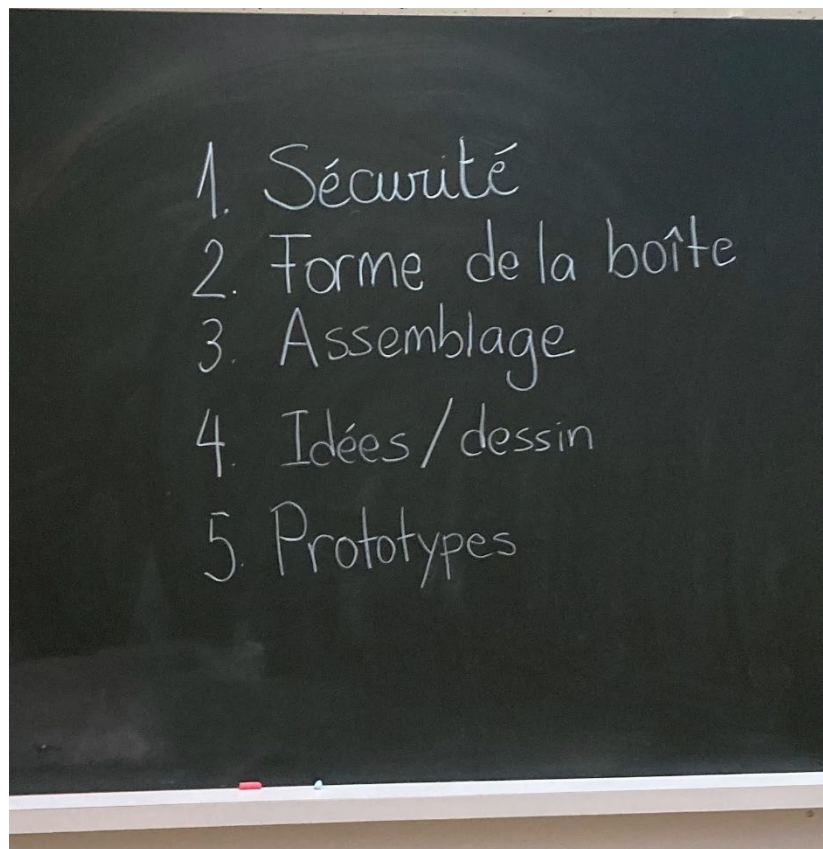 1. Sécurité
2. Forme de la boîte
3. Assemblage
4. Idées/dessin
5. Prototypes